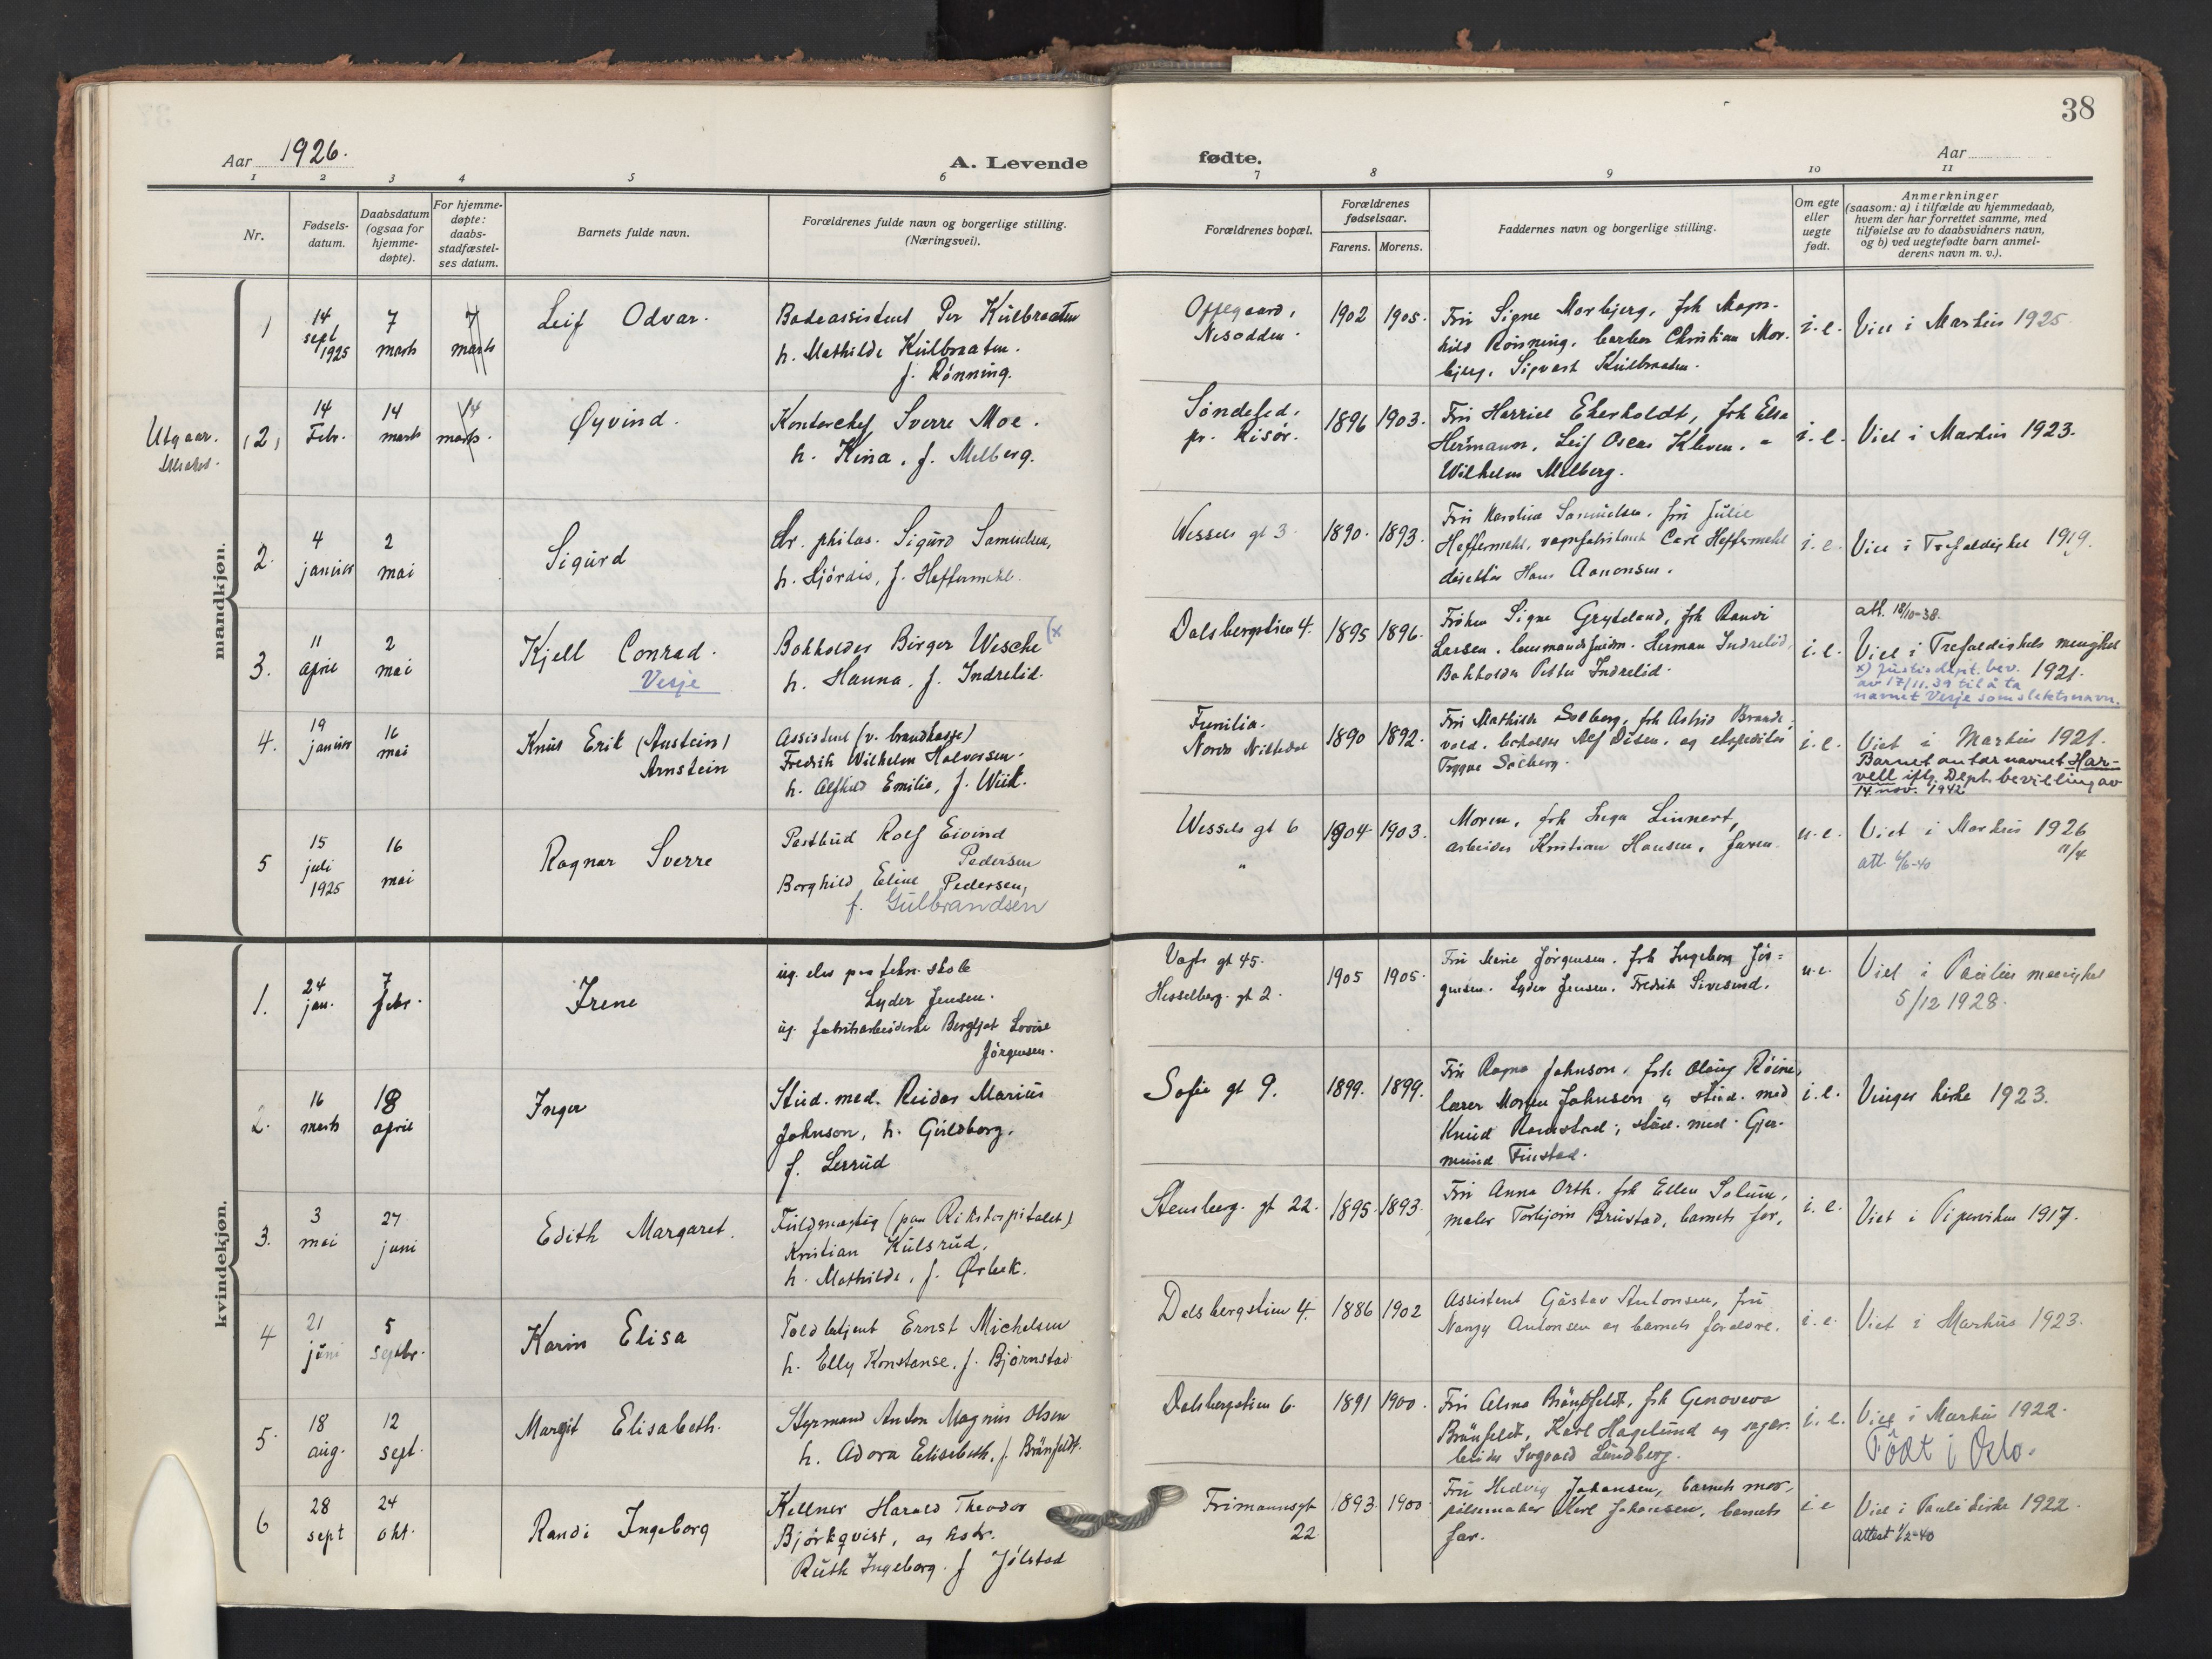 38
Aar 1926.
A. Levende
fødte.
Aar
1 2 3 4 5 6 7 8 9 10 11
Nr.
Fødsels-
datum.
Daabsdatum
(ogsaa for
hjemme-
døpte).
For hjemme-
døpte:
daabs-
stadfæstel-
ses datum.
Barnets fulde navn.
Forældrenes fulde navn og borgerlige stilling.
(Næringsvei).
Forældrenes bopæl.
Forældrenes
fødselsaar.
Farens. Morens.
Faddernes navn og borgerlige stilling.
Om egte
eller
uegte
født.
Anmerkninger
(saasom: a) i tilfælde av hjemmedaab,
hvem der har forrettet samme, med
tilføielse av to daabsvidners navn,
og b) ved uegtefødte barn anmel-
derens navn m. v.).
mandkjøn.
1
14
sept
1925
7
marts
7
marts
Leif Odvar.
Per Kulbraaten
h. Mathilde Kulbraaten.
f. Rønning.
Nesodden.
1902 1905.
Fru Signe Morbjerg, frk Magn-
hild Rønning, barber Christian Mor-
bjerg, Sigvart Kulbraaten.
i.e.
Viet i Markus 1925
Utgaar.
(2)
14
Febr.
14
marts
14
marts.
Øyvind.
Kontorchef Sverre Moe.
h. Kina, f. Melberg.
Søndeled,
pr. Risør.
1896 1903.
Fru Harriet Ekerholdt, frk Elsa
Hermann, Leif Oscar Kleven, a
Wilhelm Melberg.
i.e.
Viet i Markus 1923.
2.
4
januar
2
mai
Sigurd
Dr. philos. Sigurd Samuelsen,
h. Hjørdis, f. Heffermehl.
Wessels gt 3.
1890. 1893.
Fru Karoline Samuelsen, fru Julie
Heffermehl, vognfabrikant Carl Heffermehl
direktør Hans Aanonsen.
i.e.
Viet i Trefoldighet 1919.
3.
11
april
2
mai
Kjell Conrad.
Vesje
Bokholder Birger Wesche (x
h. Hanna, f. Indrelid.
Dalsbergstien 4.
1895 1896.
Frøken Signe Gryteland, frk Randi
Larsen, lensmandsfuldm. Herman Indrelid,
Bokholder Petter Indrelid.
i.e.
att. 18/10-38.
Viet i Trefoldighets menighet
1921.
x) Justisdept. bev.
av 17/11.39 til å ta
navnet Vesje som slektsnavn.
4.
19
januar
16
mai
Knut Erik (Austein)
Arnstein
Assistent (v. brandkasse)
Fredrik Wilhelm Halvorsen.
h. Alfhild Emilie, f. Wiik.
Nordre Nittedal
1890 1892.
Fru Mathilde Solberg, frk Astrid Brande-
vold, bokholder Alf Olsen, og ekspeditør
Trygve Solberg.
i.e.
Viet i Markus 1921.
Barnet antar navnet Har-
vell iflg. Dept. bevilling av
14. nov. 1942
5
15
juli
1925
16
mai
Ragnar Sverre
Postbud Rolf Eivind
Pedersen
Borghild Eline Pedersen,
f. Gulbrandsen
Wessels gt 6
"
1904 1903.
Moren, frk Inga Linnert,
arbeider Kristian Hansen, faren.
u.e.
Viet i Markus 1926
11/4
att 6/6-40
kvindekjøn.
1.
24
jan.
7
febr.
Irene
ug. elev paa tekn. skole
Lyder Jensen.
ug. fabrikarbeiderske Bergljot Lovise
Jørgensen.
Vogts gt 45.
Hesselberg. gt 2.
1905 1905.
Fru Marie Jørgensen, frk Ingeborg Jør-
gensen, Lyder Jensen, Fredrik Sivesind.
u.e.
Viet i Paulus menighet
5/12 1928.
2.
16
marts
18
april
Inger
Stud. med. Reidar Marius
Johnson, h. Guldborg,
f. Lerrud
Sofie gt 9.
1899. 1899.
Fru Ragna Johnson, frk Olaug Røine,
lærer Morten Johnson og stud. med
Knud Ramstad, stud. med. Gjer-
mund Finstad.
i.e.
Vinger kirke 1923.
3.
3
mai
27
juni
Edith Margaret.
Fuldmægtig (paa Rikshospitalet)
Kristian Kulsrud,
h. Mathilde, f. Ørbeck.
Stensberg. gt 22.
1895. 1893.
Fru Anna Orth, frk Ellen Solum,
maler Torbjørn Brustad, barnets far,
i.e.
Viet i Piperviken 1917.
4
21
juni
5
septbr.
Karin Elisa
Toldbetjent Ernst Michelsen
h. Elly Konstanse, f. Bjørnstad
Dalsbergstien 4.
1886 1902
Assistent Gustav Antonsen, fru
Nanzy Antonsen og barnets forældre.
i.e.
Viet i Markus 1923.
5
18
aug.
12
sept.
Margit Elisabeth.
Styrmand Anton Magnus Olsen
h. Adora Elisabeth, f. Brånfeldt.
Dalsbergstien 6.
1891 1900.
Fru Alma Brånfeldt, frk Genoveva
Brånfeldt, Karl Hagelund og sagar-
beider Sigvard Lundberg.
i.e.
Viet i Markus 1922.
Født i Oslo.
6
28
sept
24
okt.
Randi Ingeborg
Kellner Harald Theodor
Bjørkqvist, og hstr.
Ruth Ingeborg f Jølstad
Frimannsgt
22
1893 1900
Fru Hedvig Johansen, barnets mor,
pølsemaker Karl Johansen, barnets
far.
i.e
Viet i Paulus kirke 1922.
Attest 1/2-40